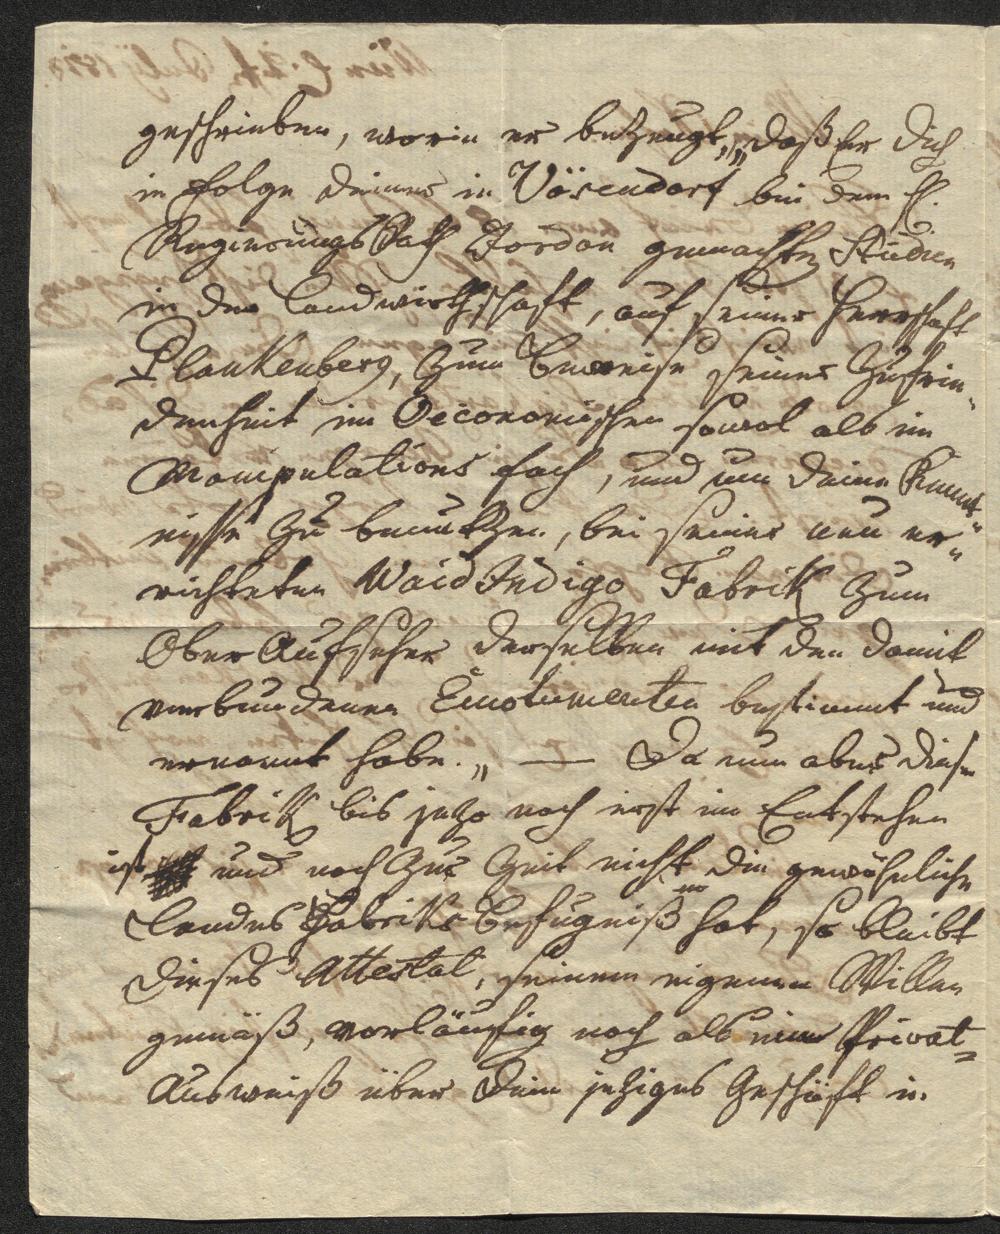 geschrieben, worin er bezeugt, „daß Er Dich
in Folge deiner in Vösendorf bei dem H.
RegierungsRath Jordan gemachten Studien
in der Landwirthschaft, auf seiner Herrschaft
Plankenberg, zum Beweise seiner Zufrie„
denheit im Oeconomischen sowol als im
Manipulations fach, und um deine Kennt„
nisse zu benutzen, bei seiner neu er„
richteten Waid Indigo Fabrik zum
Ober Aufseher derselben mit den damit
verbundenen Emolumenten bestimmt und
ernannt habe.„ — Da nun aber diese
Fabrik bis jetzo noch erst im Entstehen
ist und noch zur Zeit nicht die gewöhnliche
Landes Fabriks Befugniß hat, so bleibt
dieses Attestat, seinem eigenen Willen
gemäß, vorläufig noch als eine Privat=
Ausweiß über Dein jetziges Geschäft u.